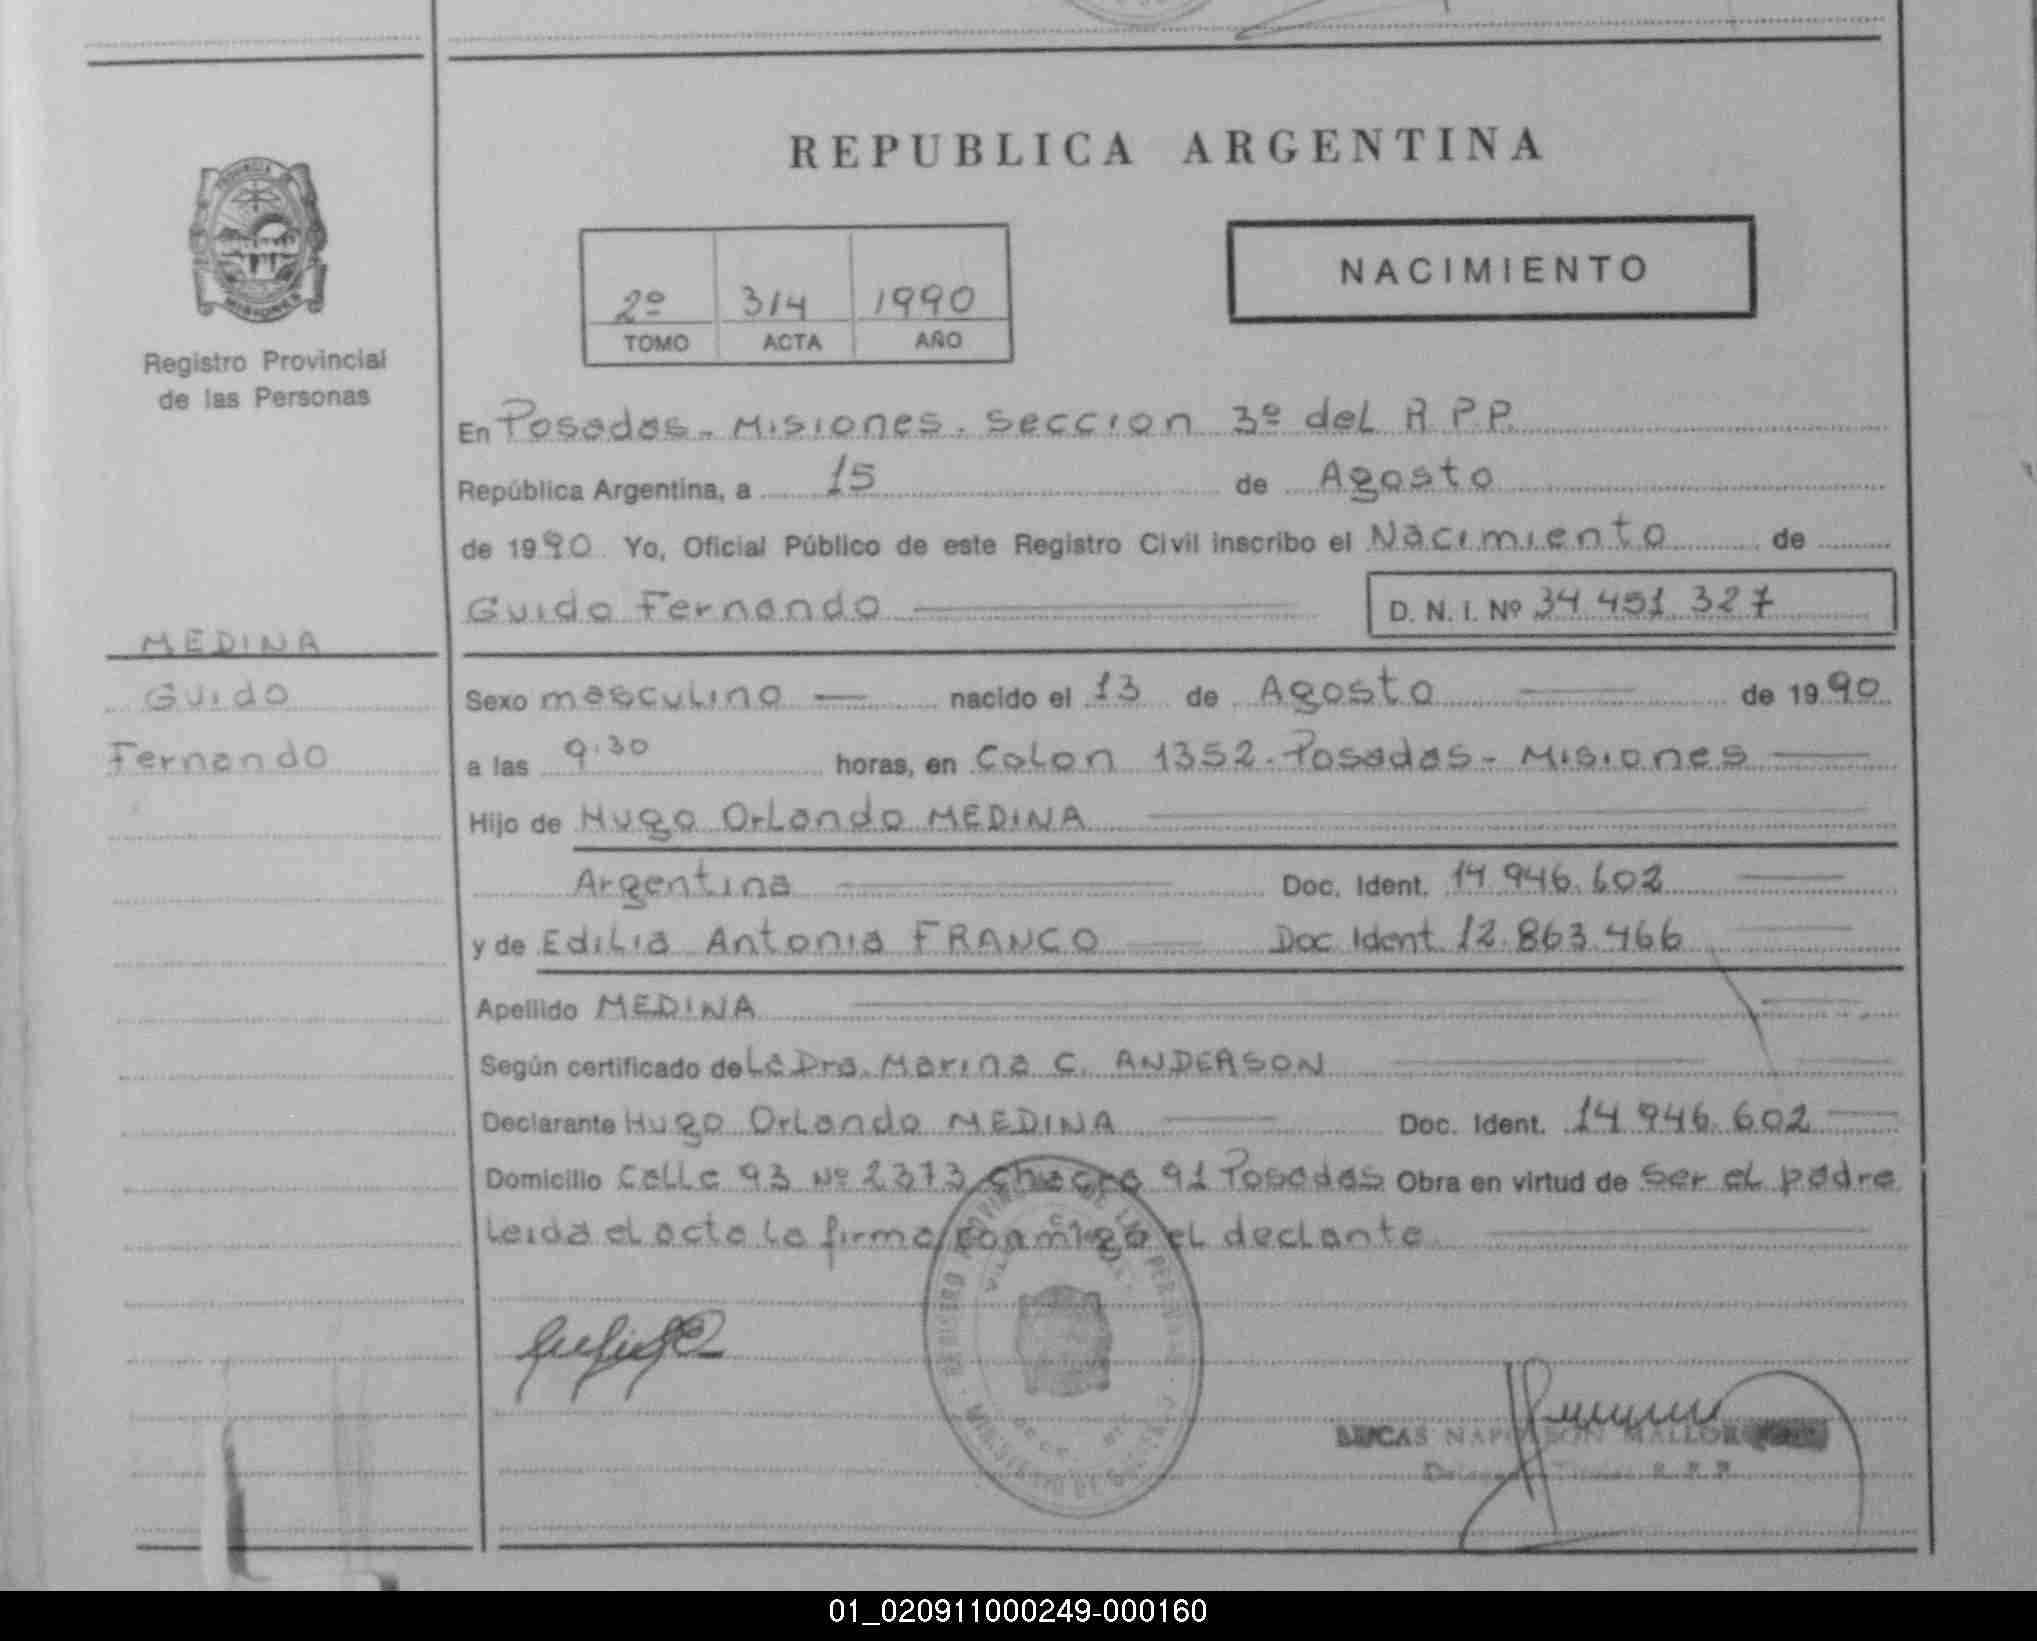 REPUBLICA ARGENTINA
NACIMIENTO
2º 314 1990
TOMO ACTA AÑO
MISIONES
Registro Provincial
de las Personas
En Posadas - Misiones. Seccion 3º del R.P.P.
República Argentina, a 15 de Agosto
de 1990 Yo, Oficial Público de este Registro Civil inscribo el Nacimiento de
Guido Fernando D. N. I. Nº 34 451 327
MEDINA
Guido
Fernando
Sexo masculino nacido el 13 de Agosto de 1990
a las 9.30 horas, en Colon 1352 - Posadas - Misiones
Hijo de Hugo Orlando MEDINA
Argentina Doc. Ident. 14 946.602
y de Edilia Antonia FRANCO Doc Ident 12.863.466
Apellido MEDINA
Según certificado de La Dra. Marina C. ANDERSON
Declarante Hugo Orlando MEDINA Doc. Ident. 14 946.602
Domicilio Calle 93 Nº 2373 Chacra 91 Posadas Obra en virtud de ser el padre
Leida el acta la firma conmigo el declante
REGISTRO DE LAS PERSONAS
MINISTERIO DE
LUCAS NAPOLEON
R. P. P.
01_020911000249-000160